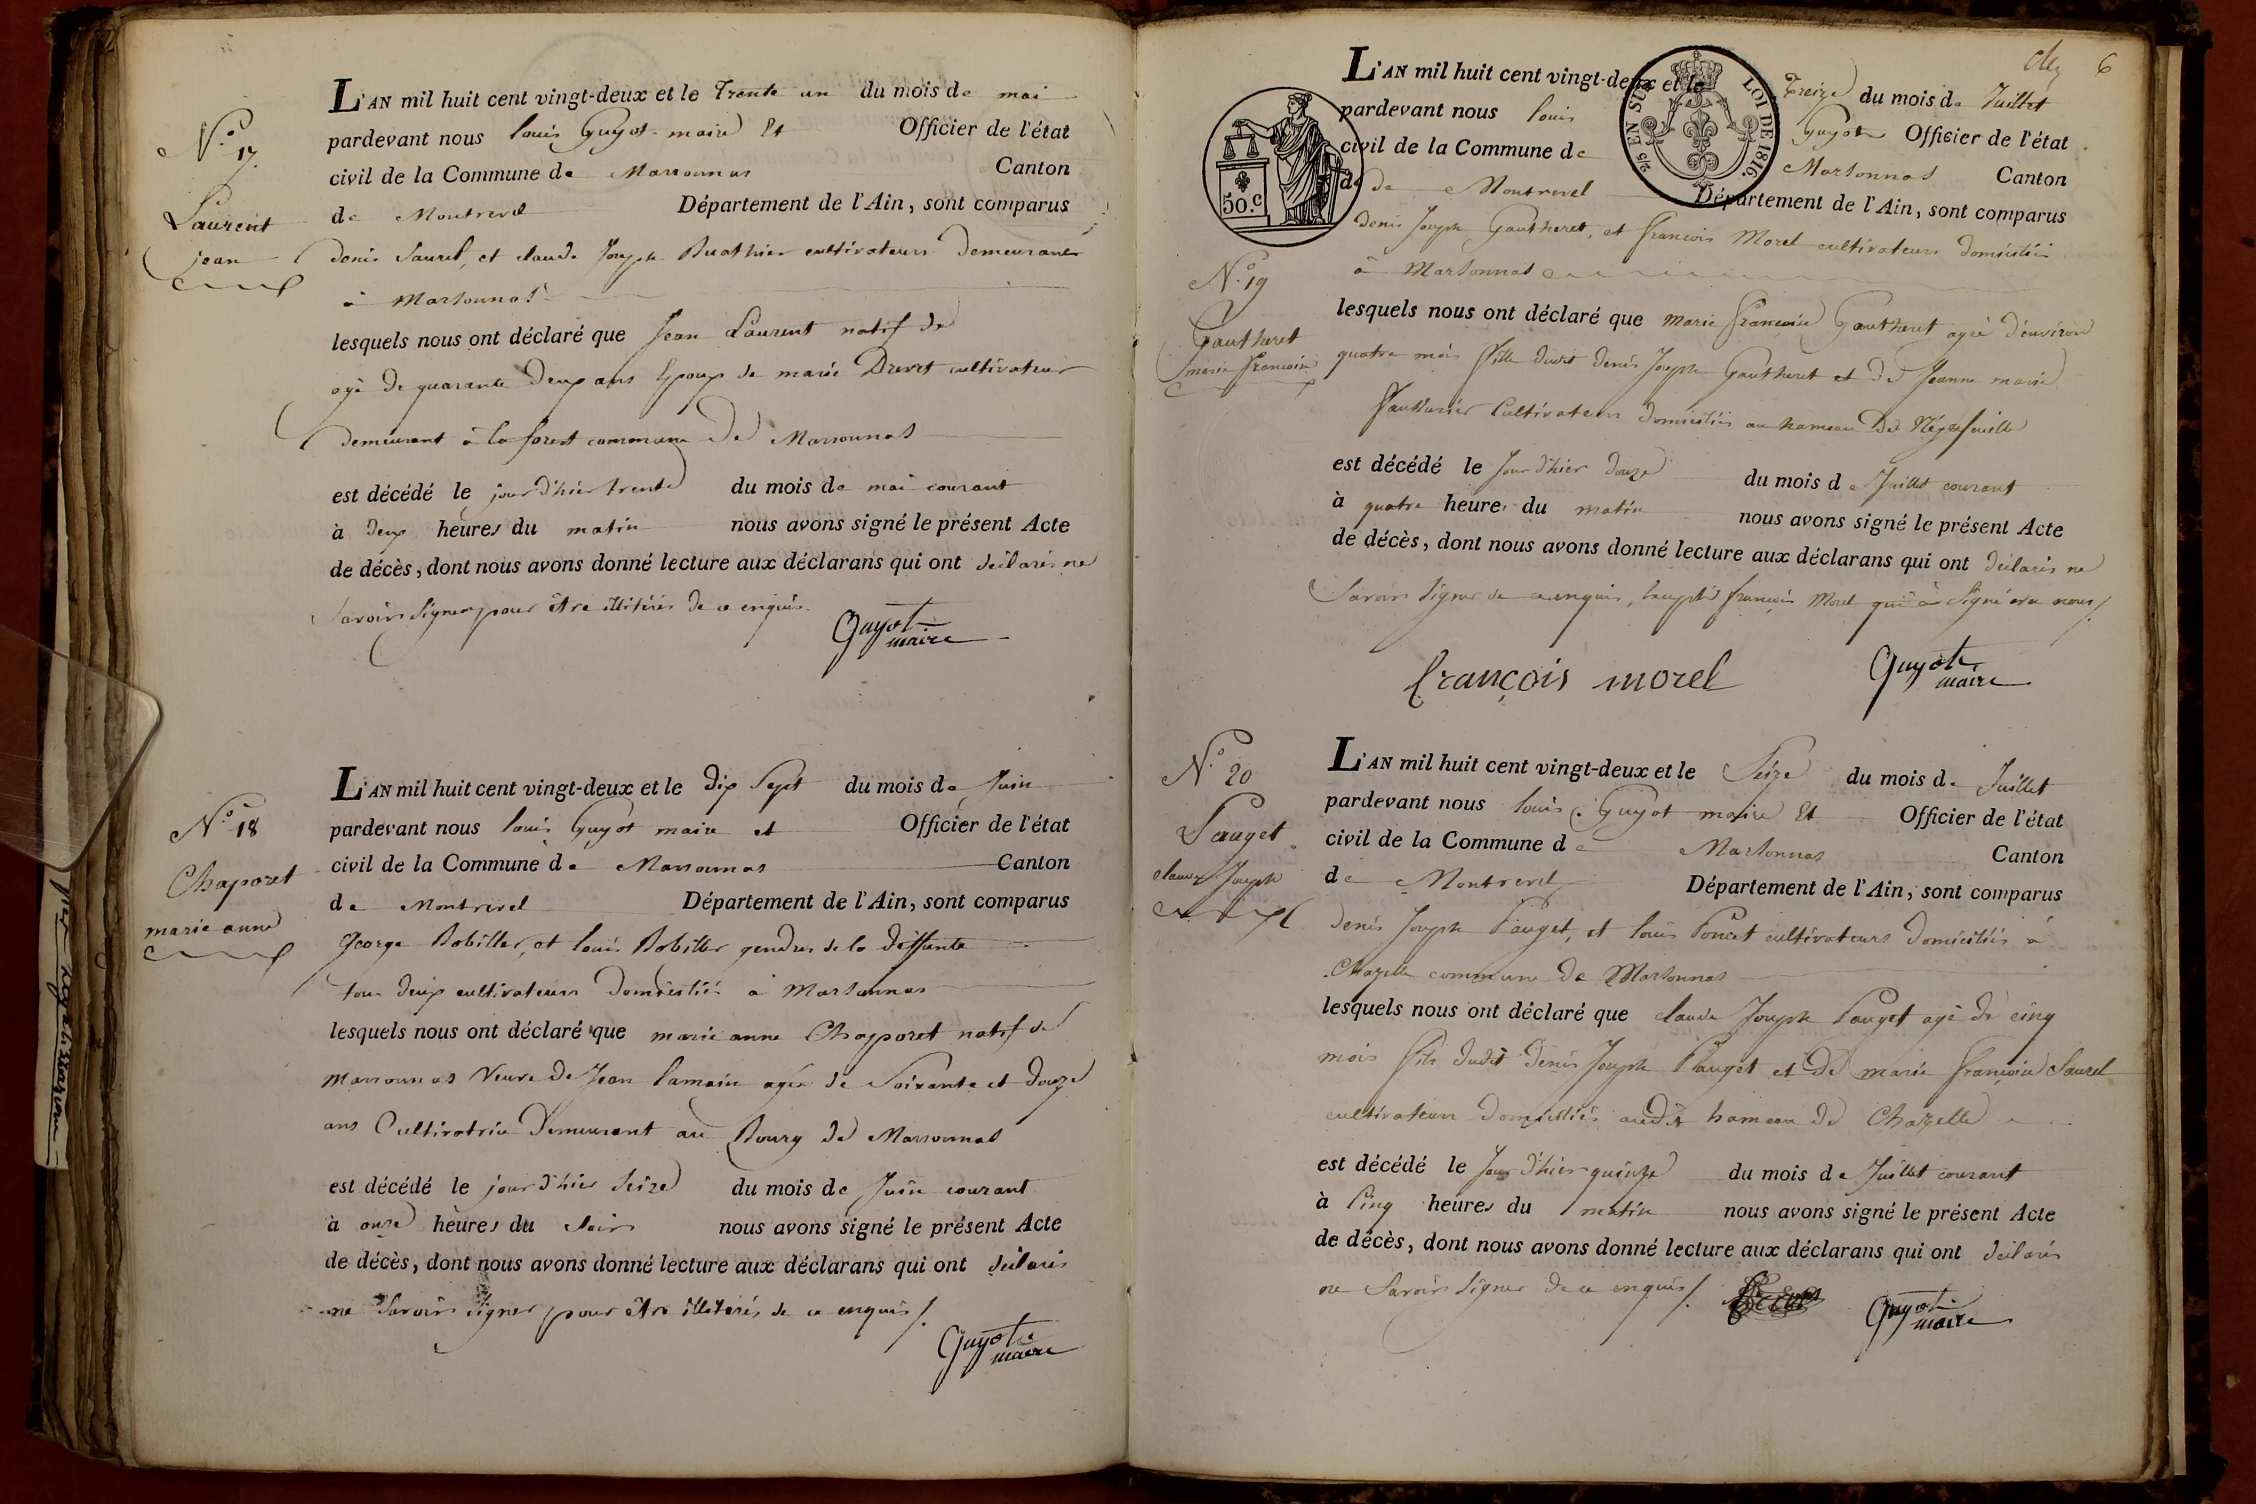 N.° 17
Laurent
jean
L'AN mil huit cent vingt-deux et le Trente un du mois de mai
pardevant nous louis Guyot maire Et Officier de l'état
civil de la Commune de Marsonnas Canton
de Montrevel Département de l'Ain, sont comparus
denis Saurel, et claude Joseph Buathier cultivateurs demeurant
à Marsonnas
lesquels nous ont déclaré que Jean Laurent natif de
agé de quarante deux ans Epoux de marie Drevet cultivateur
demeurant à la forest commune De Marsonnas
est décédé le jour d'hier trente du mois de mai courant
à deux heures du matin nous avons signé le présent Acte
de décès, dont nous avons donné lecture aux déclarans qui ont déclarés ne
savoir signer pour être illitérés de ce enquis
Guyot
maire
N.° 18
Chaporet
marie anne
L'AN mil huit cent vingt-deux et le dix Sept du mois de Juin
pardevant nous louis Guyot maire et Officier de l'état
civil de la Commune de Marsonnas Canton
de Montrevel Département de l'Ain, sont comparus
George Bobiller, et louis Bobiller gendres de la deffunte
tous deux cultivateurs domiciliés à Marsonnas
lesquels nous ont déclaré que marie anne Chaporet natif de
Marsonnas Veuve de Jean lamain agée de Soixante et douze
ans Cultivatrice Demeurant au Bourg de Marsonnas
est décédé le jour d'hier Seize du mois de Juin courant
à onze heures du Soir nous avons signé le présent Acte
de décès, dont nous avons donné lecture aux déclarans qui ont déclarés
ne Savoir signer pour être illiterés de ce enquis /.
Guyot
maire
6
50.c
2/5 EN SUS LOI DE 1816.
N.° 19
Gautheret
marie francoise
L'AN mil huit cent vingt-deux et le Treize du mois de Juillet
pardevant nous louis Guyot Officier de l'état
civil de la Commune de Marsonnas Canton
de de Montrevel Département de l'Ain, sont comparus
denis Joseph Gautheret, et francois Morel cultivateurs domiciliés
à Marsonnas
lesquels nous ont déclaré que marie françoise Gautheret agée d'environ
quatre mois fille dudit denis Joseph Gautheret et de Jeanne marie
cultivateurs domiciliés au hameau De Négefeuille
est décédé le Jour d'hier douze du mois de Juillet courant
à quatre heures du matin nous avons signé le présent Acte
de décès, dont nous avons donné lecture aux déclarans qui ont déclarés ne
Savoir signer de ce enquis, excepté françois Morel qui à signé avec nous /.
françois morel
Guyot
maire
N.° 20
Pauget
claude Joseph
L'AN mil huit cent vingt-deux et le Seize du mois de Juillet
pardevant nous louis Guyot maire Et Officier de l'état
civil de la Commune de Marsonnas Canton
de Montrevel Département de l'Ain, sont comparus
denis Joseph Pauget, et louis Poncet cultivateurs domiciliés à
Chazelle commune de Marsonnas
lesquels nous ont déclaré que claude Joseph Pauget agé de cinq
mois fils dudit denis Joseph Pauget et de marie françoise Saurel
cultivateurs domiciliés audit hameau de Chazelle
est décédé le Jour d'hier quinze du mois de Juillet courant
à Cinq heures du matin nous avons signé le présent Acte
de décès, dont nous avons donné lecture aux déclarans qui ont déclarés
ne Savoir signer de ce enquis /.
Guyot
maire